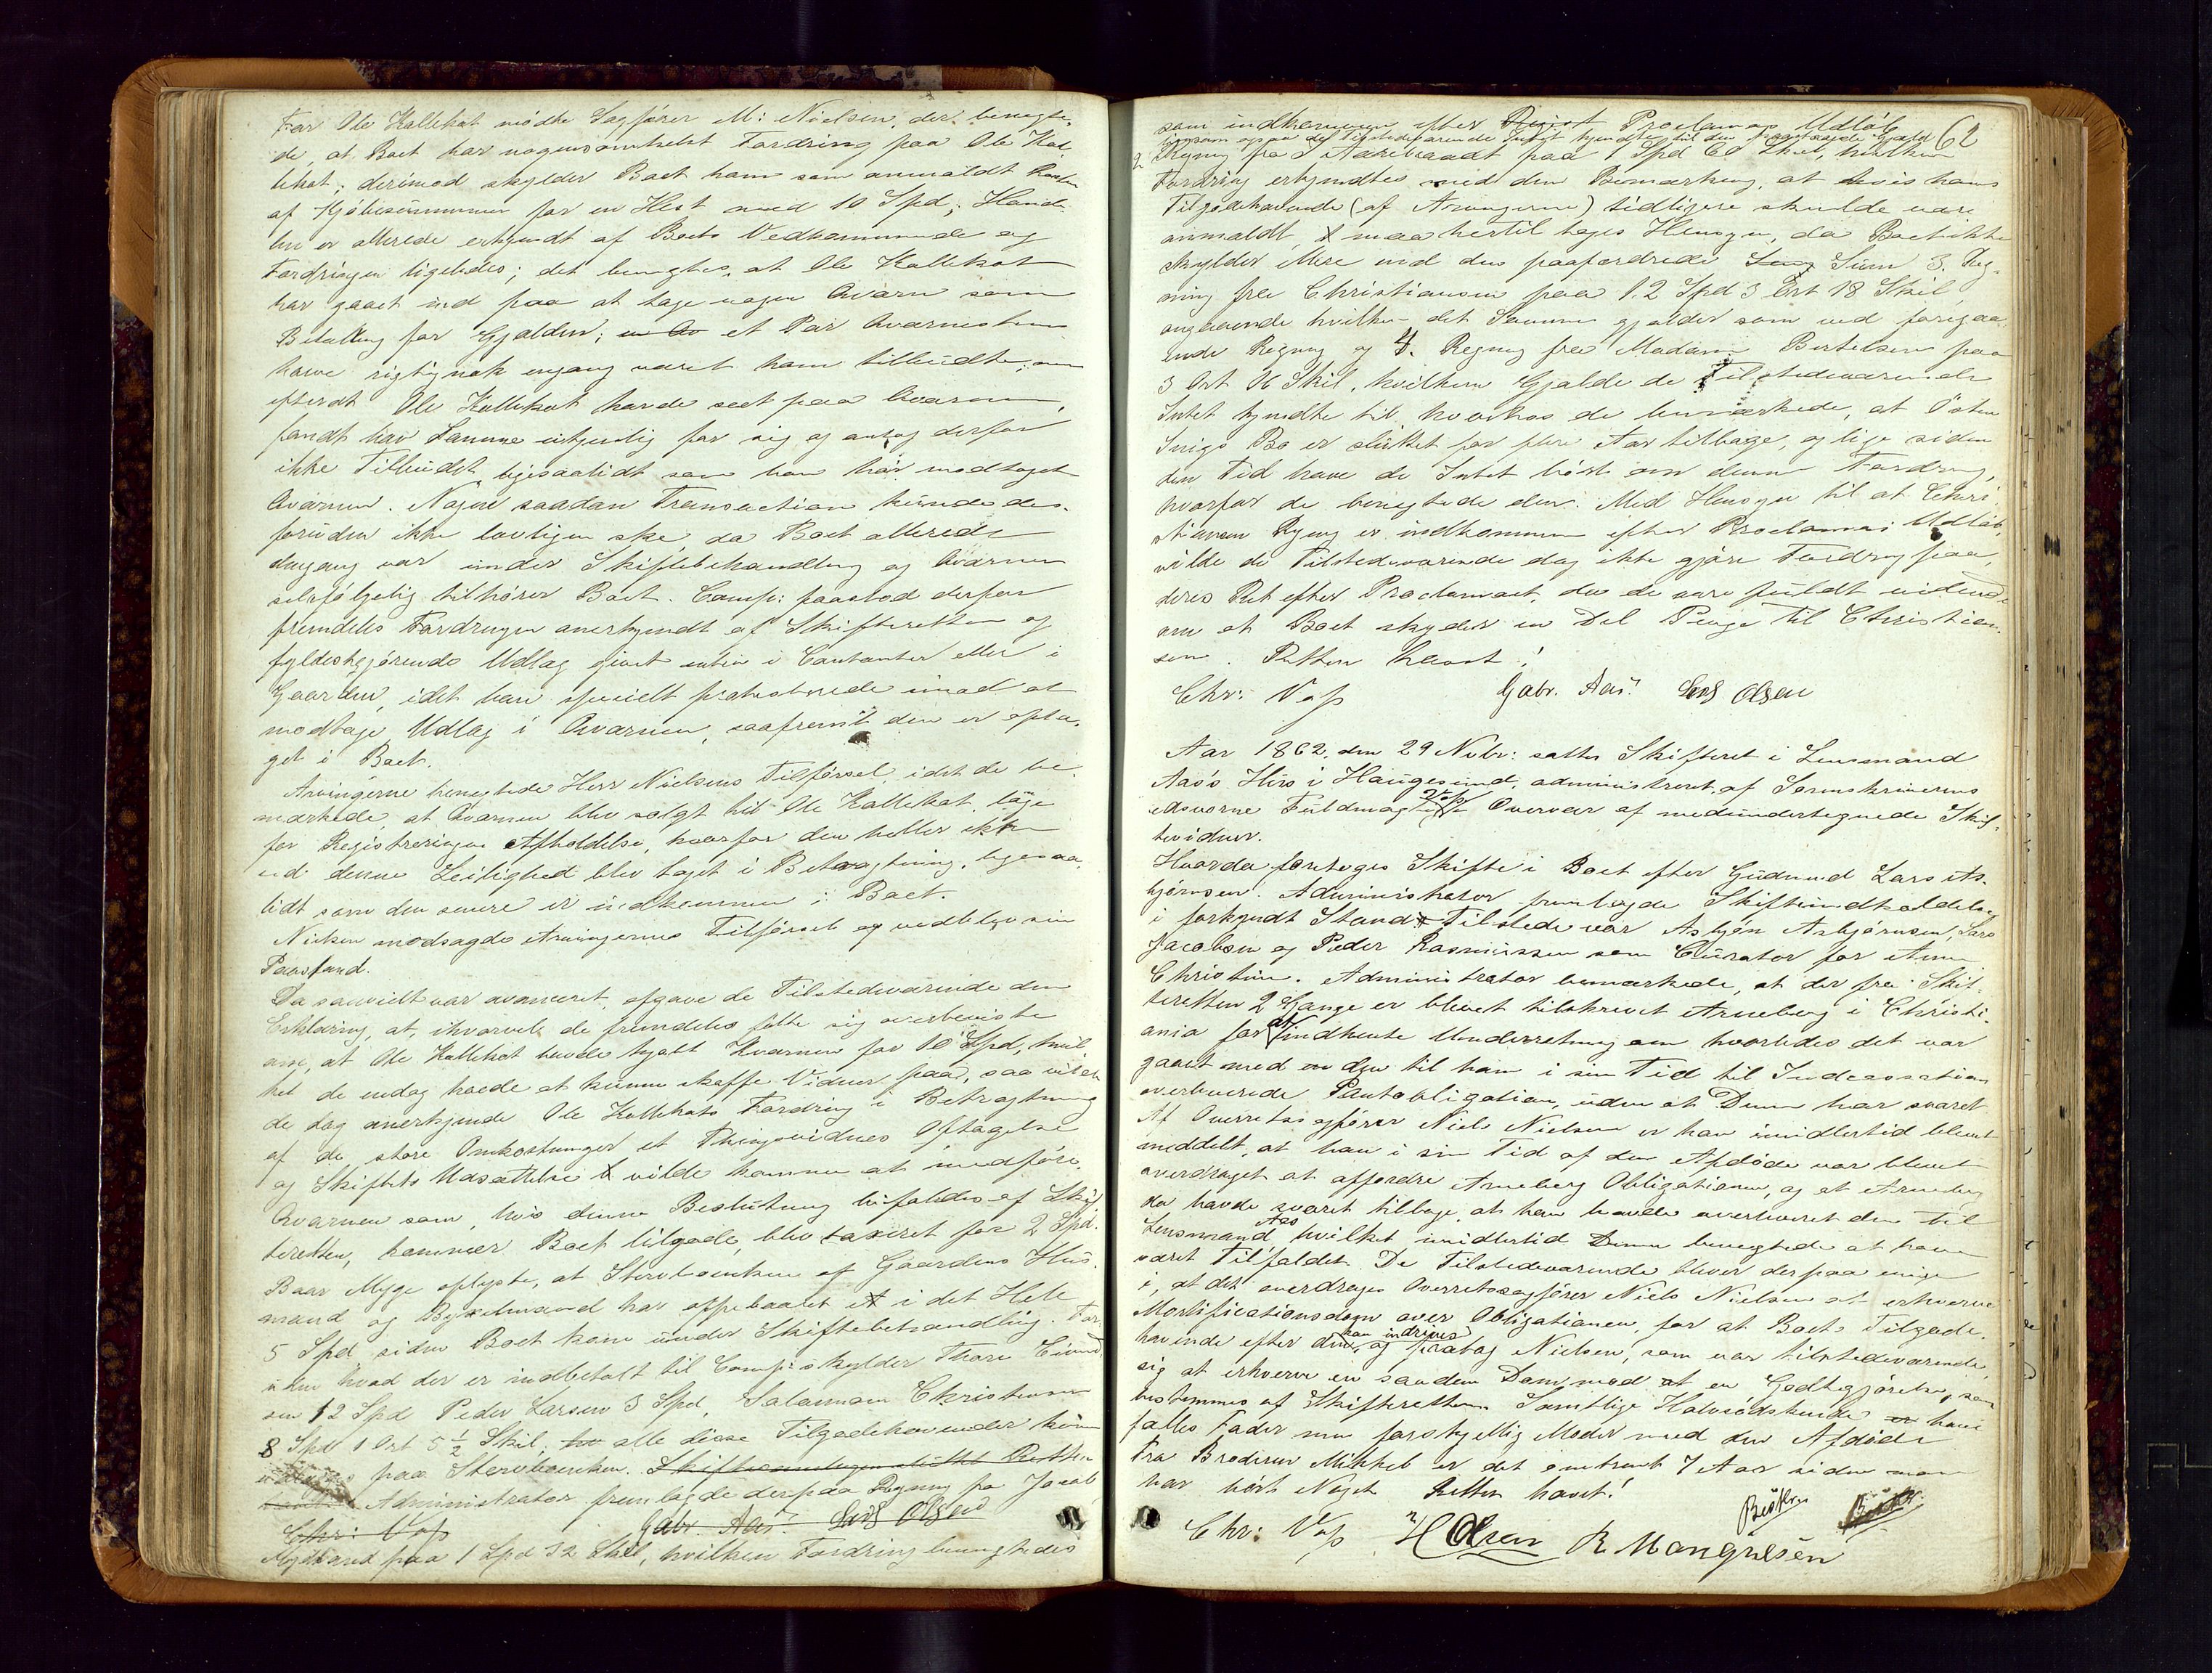 For Ole Kallekot mödte Sagfører M: Nielsen, der benegte-
de, at Boet har nogensomhelst Fordring paa Ole Kal-
lekot; derimod skylder Boet ham som anmeldt Resten
af Kjöbesummen for en Hest med 10 Spd; Hand-
len er allerede erkjendt af Boets Vedkommende og
Fordringen ligeledes; det benegtes, at Ole Kallekot
har gaaet ind paa at tage nogen Qværn som
Betaling for Gjælden; et Par Qværnstene
have rigtignok engang været ham tilbudt, men
efterat Ole Kallekot havde seet paa Qværnen,
fandt han Samme utjenlig for sig og antog derfor
ikke Tilbudet, ligesaalidt som han har modtaget
Qværnen. Nogen saadan Transaction kunde des-
foruden ikke lovligen ske da Boet allerede
dengang var under Skiftebehandling og Qværnen
selvfølgelig tilhører Boet. Comp: paastod derfor
fremdeles Fordringen anerkjendt af Skifteretten og
fyldestgjørende Udlæg givet enten i Contanter eller i
Gaarden, idet han specielt protesterede imod at
modtage Udlæg i Qværnen, saafremt den er opta-
get i Boet.
Arvingerne benegtede Herr Nielsens Tilførsel, idet de be-
mærkede, at Qværnen blev solgt til Ole Kallekot länge
for Registreringens Afholdelse, hvorfor den heller ikke
ved denne Leilighed blev taget i Betragtning, ligesaa-
lidt som den senere er indkommen i Boet.
Nielsen modsagde Arvingernes Tilførsel og vedblev sin
Paastand.
Da saavidt var avanceret, afgave de Tilstedeværende den
Erklæring, at, ihvorvel de fremdeles følte sig overbeviste
om, at Ole Kallekot havde kjøbt Kværnen for 10 Spd, hvil-
ket de endog havde at kunne skaffe Vidner paa, saa vilde
de dog anerkjende Ole Kallekots Fordring i Betragtning
af de store Omkostninger et Thingsvidnes Optagelse
og Skiftets Udsættelse vilde komme at medføre.
Qværnen som, hvis denne Beslutning bifaldes af Skif-
teretten, kommer Boet tilgode, blev taxeret for 2 Spd.
Baar Myge oplyste, at Stervboenken af Gaardens Hus-
mand og Bygselmand har oppebaaret i det Hele
5 Spd siden Boet kom under Skiftebehandling. For-
uden hvad der er indbetalt til Comp: skylder Thore Eivind-
sen 12 Spd Peder Larsen 3 Spd, Salamon Christensen
8 Spd 1 Ort 5 1/2 Skil; alle disse Tilgodehavender kun
paa Stervboenken.
Administrator fremlagde derpaa Regning fra Jacob
Chr: Vop Gabr. Aas. Lars Olsen
paa 1 Spd 32 Skil, hvilken Fordring benegtedes
62
som indkommen efter Proclamas Udløb
ligesom ogsaa de Tilstedeværende Intet kjendte til den
2 Regning fra paa 1 Spd 60 Skil, hvilken
Fordring erkjendtes med den Bemærkning, at hvis hans
Tilgodehavende (af Arvingerne) tidligere skulde være
anmeldt, maa hertil tages Hensyn, da Boet ikke
skylder Mere end den paafordrede Sum 3. Reg-
ning fra Christiansen paa 12 Spd 3 Ort 18 Skil,
angaaende hvilken det Samme gjælder som ved foregaa-
ende Regning og 4. Regning fra Madam Bertelsen paa
3 Ort 16 Skil, hvilken Gjæld de Tilstedeværende
Intet kjendte til, hvorhos de bemærkede, at
Bo er sluttet for flere Aar tilbage, og lige siden
den Tid have de Intet hørt om denne Fordring,
hvorfor de benegtede den. Med Hensyn til at Chri-
stiansens Regning er indkommen efter Proclamas Udløb,
vilde de Tilstedeværende dog ikke gjøre Fordring paa
deres Ret efter Proclamaet, da de vare fuldt vidende
om at Boet skylder en Del Penge til Christian-
sen. Retten hævet!
Chr: Vop Gabr. Aas. Lars Olsen
Aar 1862, den 29 Novbr: sattes Skifteret i Lensmand
Aas's Hus i Haugesund, administreret af Sorenskriverens
edsvorne Fuldmægtig Vop i Overvær af medundertegnede Skif-
tevidner.
Hvorda foretoges Skifte i Boet efter Gudmund Lars As-
bjørnsen. Administrator fremlagde Skifteindkaldelsen
i forkyndt Stand. Tilstede var Asbjørn Asbjørnsen, Lars
Jacobsen og Peder Rasmussen som Curator for Anne
Christine. Administrator bemærkede, at der fra Skif-
teretten 2 Gange er blevet tilskrevet Arneberg i Christi-
ania for at indhente Underretning om hvorledes det var
gaaet med den til ham i sin Tid til Indcassation
overleverede Pantobligation, uden at Denne har svaret.
Af Overretssagfører Niels Nielsen er han imidlertid blevet
meddelt, at han i sin Tid af den Afdøde var blevet
overdraget at affordre Arneberg Obligationen, og at Arneberg
da havde svaret tilbage, at han havde overleveret den til
Lensmand Aas hvilket imidlertid Denne benegtede at have
været Tilfældet. De Tilstedeværende bleve derpaa enige
i, at det overdrages Overretssagfører Niels Nielsen at erhverve
Mortificationsdom over Obligationen, for at Boets Tilgode-
havende efter den kan indrives, og paatog Nielsen, som var tilstedeværende,
sig at erhverve en saadan Dom mod en Godtgjørelse, som
bestemmes af Skifteretten. Samtlige Halvsødskende have
fælles Fader men forskjellig Moder med den Afdøde.
Fra Broderen Mikkel er det omtrent 7 Aar siden man
har hørt Noget. Retten hævet!
Chr: Vop H Olsen R Mangnesen